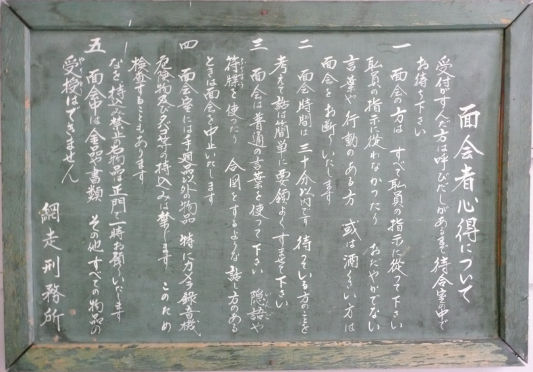 面会者心得について
受付がすんだ方は呼びだしがあるまで待合室の中で
お待ち下さい
一 面会の方は すべて職員の指示に従って下さい
職員の指示に従わなかったり おだやかでない
言葉や行動のある方 或は酒くさい方は
面会をお断りいたします
二 面会時間は三十分以内です 待っている方のことを
考えて話は簡単に要領よくすませて下さい
三 面会は普通の言葉を使って下さい 隠語や
符牒を使ったり 合図をするような話し方のある
ときは面会を中止いたします
四 面会室には手廻品以外の物品 特にカメラ録音機、
危険物及びタバコ等の持込みは禁じます このため
検査することもあります
なを持込み禁止物品は正門で一時お預りいたします
五 面会中は金品書類 その他すべての物品の
受授はできません
網走刑務所